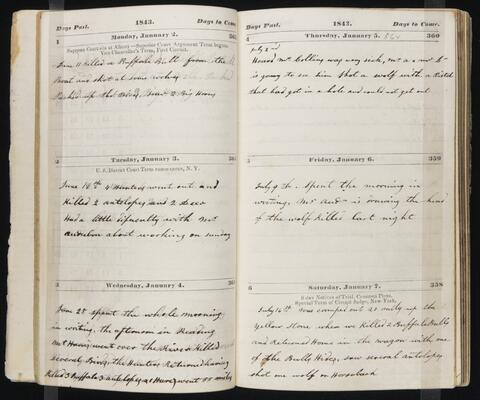 Days Past. 1843. Days to Come.
1 Monday, January 2.
Supreme Court sits at Albany—Superior Court Argument Term begins.
Vice Chancellor's Term, First Circuit.
June 11 Killed a Buffalo Bull from the
Boat and shot at some wolves
Picked up that Bulls, 2 Big Horns
2 Tuesday, January 3.
U. S. District Court Term commences, N. Y.
June 18th 4 Hunters went out and
Killed 2 antelopes and 2 deer
Had a little difficulty with Mr
Audubon about working on sunday
3 Wednesday, January 4.
June 28 spent the whole morning
in writing, the afternoon in Reading
Mr Harris went over the River & Killed
several Birds, the Hunters Returned having
Killed 3 Buffalo 3 antelopes & 1 Hare, went 25 miles
Days Past. 1843. Days to Come.
4 Thursday, January 5. 360
July 2nd
Heard Mr Collins was very sick, Mr A & Mr
is going to see him shot a wolf with a Pistol
that had got in a hole and could not get out
5 Friday, January 6. 359
July 9th. Spent the morning in
writing. Mr Aud is drawing the head
of the wolf killed last night
6 Saturday, January 7. 358
8 day Notices of Trial, Common Pleas.
Special Term of Circuit Judge, New York.
July 16th Have camped out 20 miles up the
Yellow Stone where we Killed 2 Buffalo Bulls
and Returned Home in the wagon with one
of the Bulls Hides, saw several antelopes
shot one wolf on Horseback